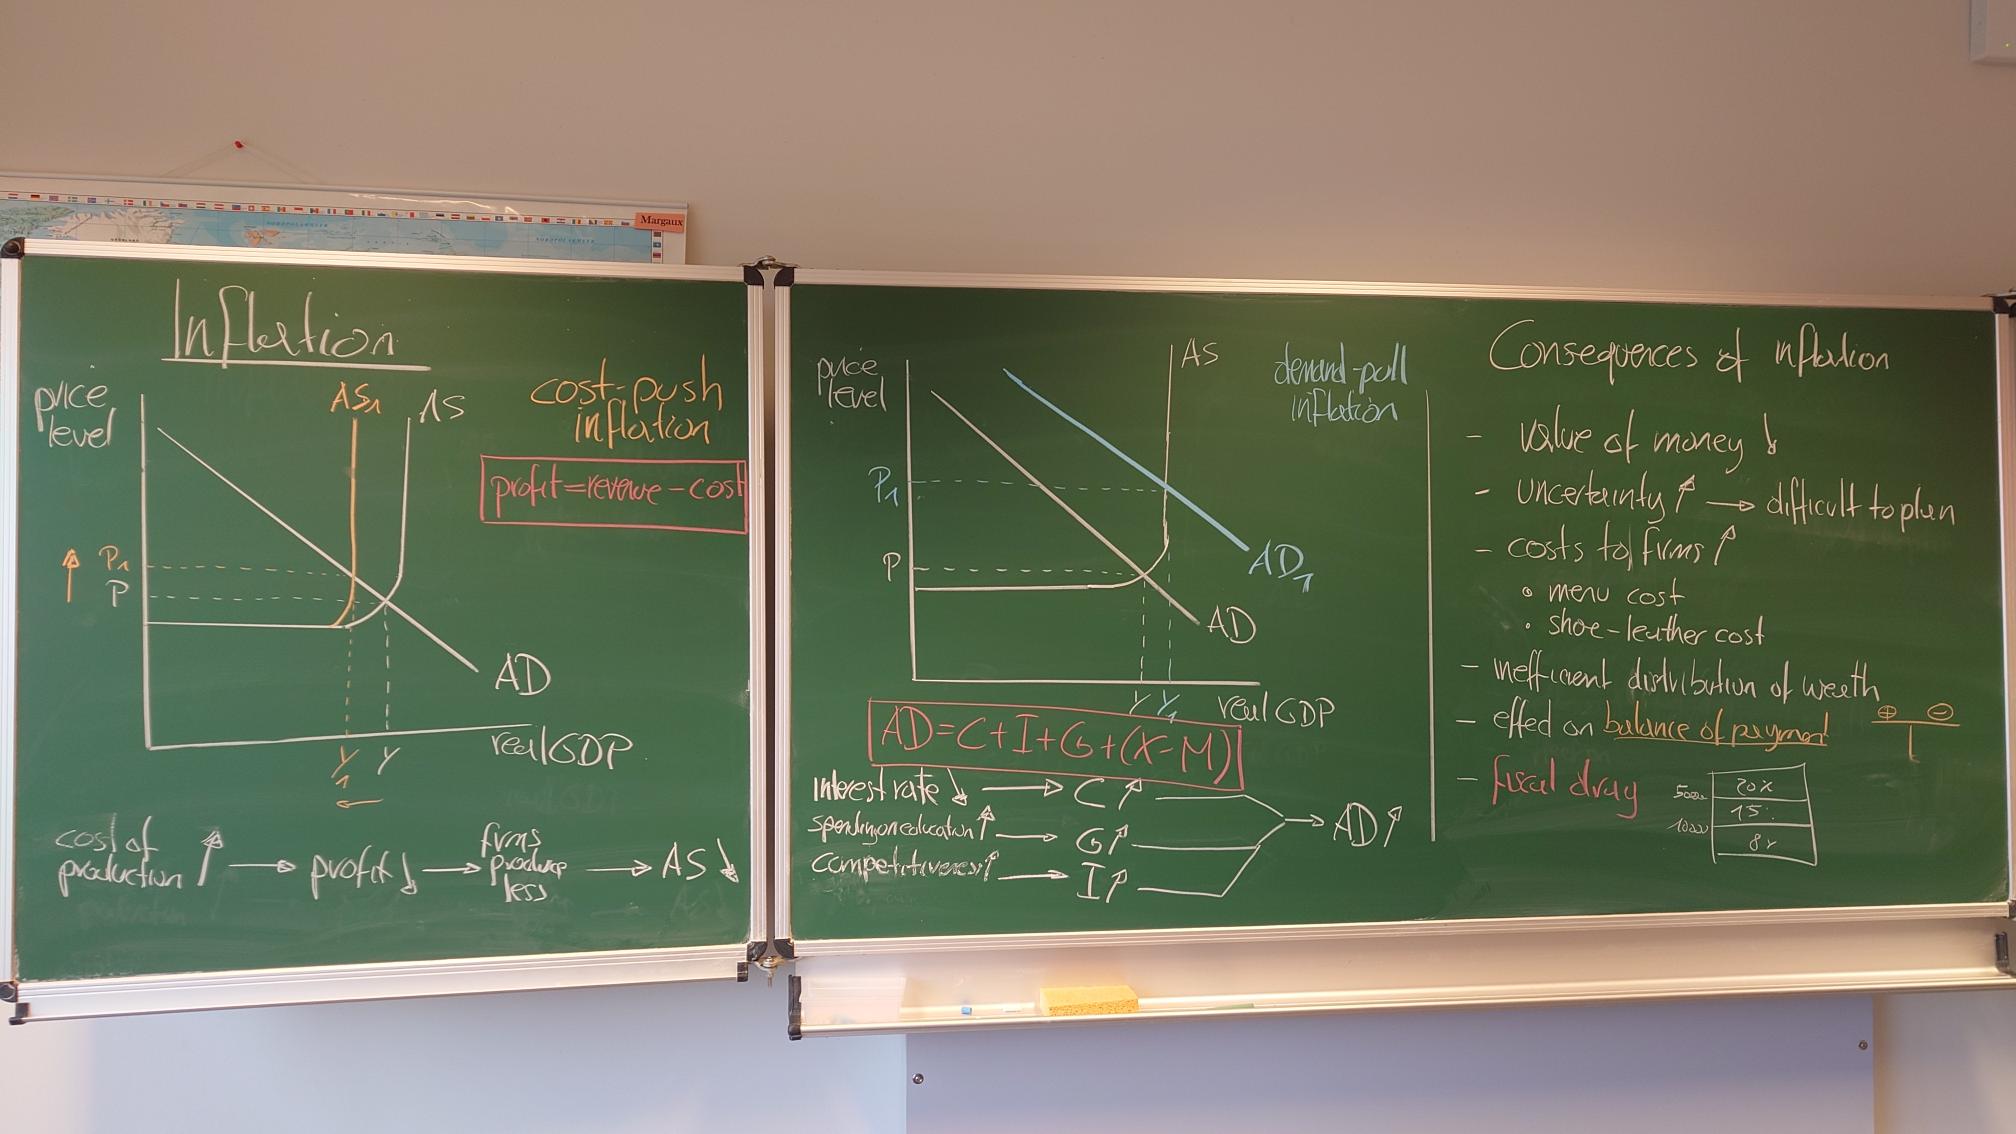 Margaux
Inflation
price
level
AS1
AS
cost-push
inflation
profit=revenue-cost
P1
P
AD
real GDP
Y1
Y
cost of
production ↑ → profit ↓ → firms
produce
less → AS ↓
price
level
AS
demand-pull
inflation
P1
P
AD1
AD
Y
Y1
real GDP
AD=C+I+G+(X-M)
Interest rate ↓ → C ↑
spending on education ↑ → G ↑
competitiveness ↑ → I ↑
→ AD ↑
Consequences of inflation
- value of money ↓
- uncertainty ↑ → difficult to plan
- costs to firms ↑
• menu cost
• shoe-leather cost
- inefficient distribution of wealth
- effect on balance of payment
+ -
- fiscal drag
20%
15%
8%